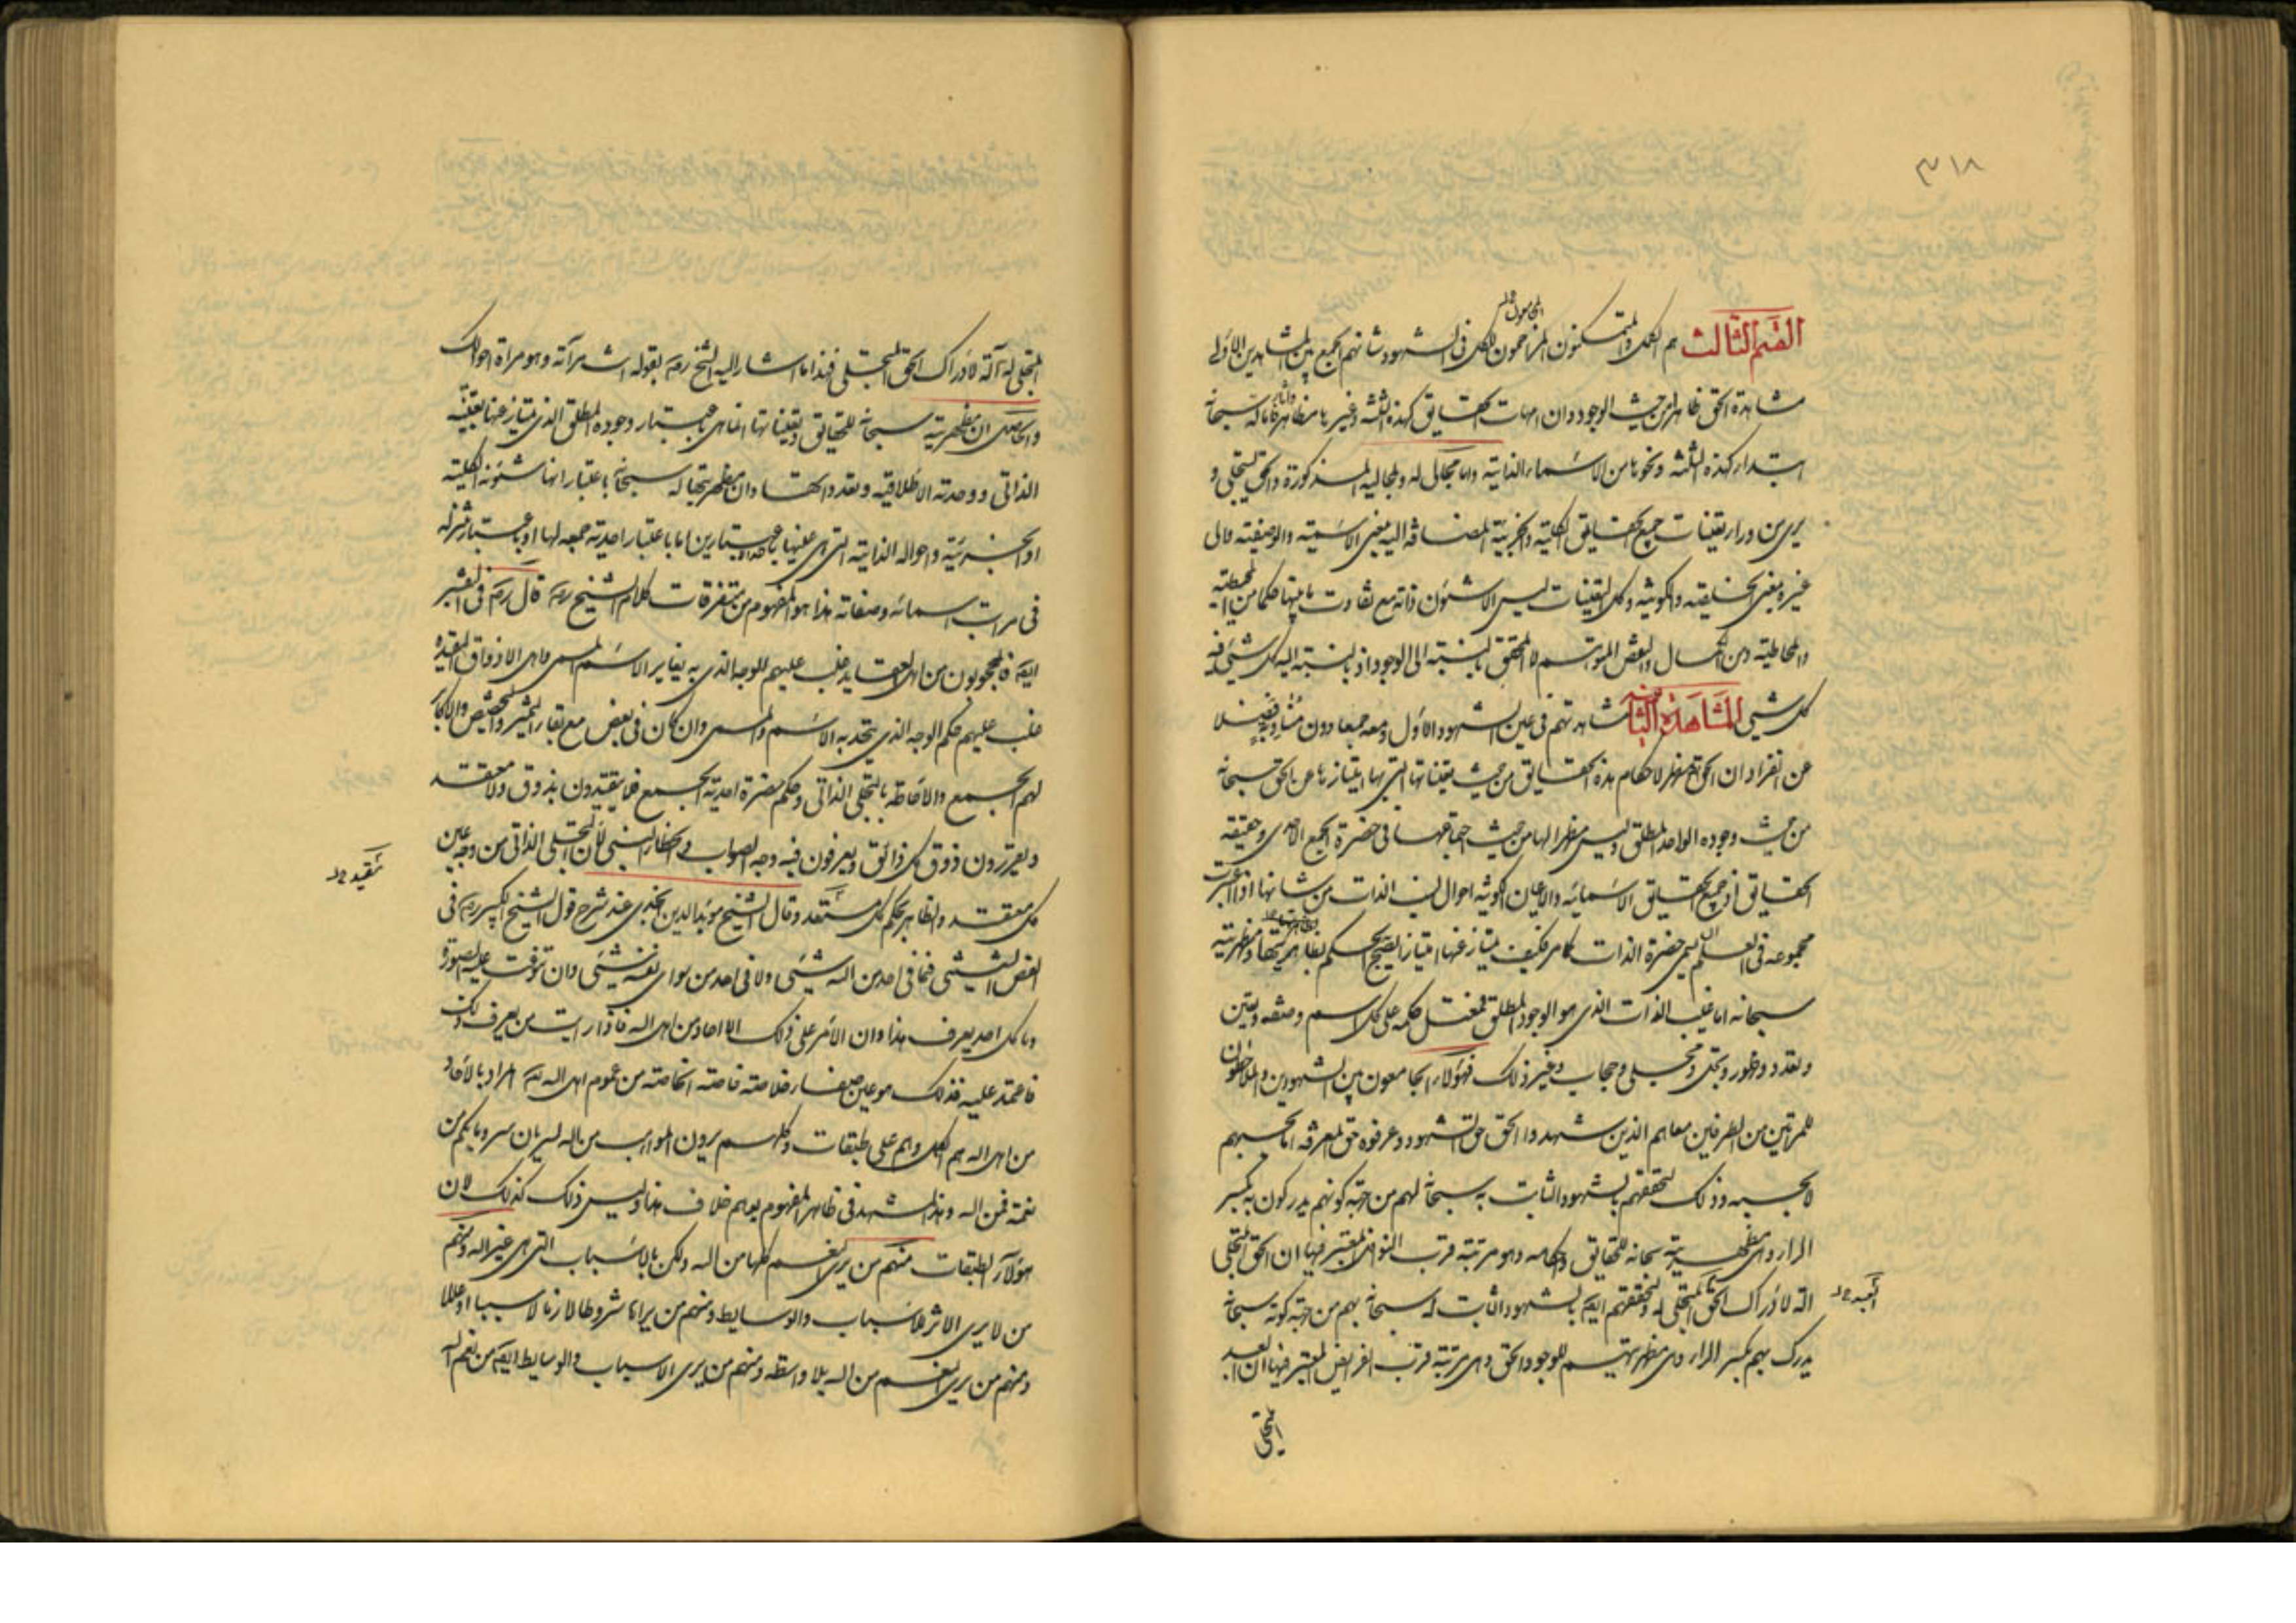 ٣١٨
القسم الثالث هم الكمل والمتمكنون المزاحمون للكل فى الشهود شانهم الجمع بين المشاهدين الاولى
مشاهدة الحق ظاهرا من حيث الوجود وان امهات الحقايق كهذه الثلثة وغيرها مظاهر له سبحانه
ابتداء كهذه الثلثة ونحوها من الاسماء الذاتية واما مجالى له ولمجاليه المذكورة والحق يتجلى و
يرى من وراء تعينات جميع الحقايق الكلية والجزئية المضافة اليه بمعنى الاسمية والوصفية والى
غيره بمعنى الخليقية والكونية وكل التعينات ليس الا شئون ذاته مع تفاوت ما بينها حكما من المحيطية
والمحاطية ومن الكمال والنقص المتوهم لا المحقق بالنسبة الى الوجود اذ بالنسبة اليه كل شئ فيه
كل شئ المشاهدة الثانية مشاهدتهم فى عين الشهود الاول ومعه جمعا دون مناوبة فضلا
عن انفراد ان الحق مظهر لاحكام هذه الحقايق من حيث تعيناتها التى بها امتيازها عن الحق سبحانه
من حيث وجوده الواحد المطلق وليس مظهرا لها من حيث اجتماعها فى حضرة الجمع الاحدى وحقيقة
الحقايق اذ جميع الحقايق الاسمائية والاعيان الكونية احوال لـ الذات من شانها اذا اعتبرت
مجموعة فى العلم الـ حضرة الذات كما مر فكيف يمتاز عنها امتيازا يصح الحكم بظاهريتها ومظهريته
سبحانه اما غيب الذات الذى هو الوجود المطلق حكمه على كل اسم وصفة وتعين
وتعدد وظهور وتجلى ومجلى وحجاب وغير ذلك فهؤلاء الجامعون بين الشهودين والملاحظون
للمرتين من الطرفين معا هم الذين شهدوا الحق حق الشهود وعرفوه حق المعرفة اما بحسبهم
لا بحسبه وذلك لتحققهم بالشهود الثابت به سبحانه لهم من جهة كونهم يدركون به بكسر
الراء وهى مظهريته سبحانه للحقايق واحكامها وهو مرتبة قرب النوافل المعتبر فيها ان الحق المتجلى
الة لادراك الحق المتجلى له ولتحققهم ايضا بالشهود الثابت له سبحانه بهم من جهة كونه سبحانه
يدرك بهم بكسر الراء وهى مظهريتهم للوجود الحق وهى مرتبة قرب الفرائض المعتبر فيها ان العبد
المتجلى
المتجلى له آلة لادراك الحق المتجلى فهذا ما اشار اليه الشيخ رضه بقوله انت مرآته وهو مرآة احوالك
والحاصل ان مظهريته سبحانه للحقايق وتعيناتها انما هى باعتبار وجوده المطلق الذى يمتاز عنها بتعينه
الذاتى ووحدته الاطلاقية وتعدد الحقـ وان مظهريتها له سبحانه باعتبار انها شئونه الكلية
او الجزئية واحواله الذاتية التى هى عينها باحد الاعتبارين اما باعتبار احدية جمعه لها او باعتبار تنزله
فى مراتب اسمائه وصفاته هذا هو المفهوم من متفرقات كلام الشيخ رضه قال رضه فى التفسير
ايضا فالمحجوبون من اهل العقايد غلب عليهم الوجه الذى به يغاير الاسم المسمى واهل الاذواق المقيدة
غلب عليهم حكم الوجه الذى يتحد به الاسم والمسمى وان كان فى بعض مع بقاء التميز والتخصيص والاكابر
لهم الجمع والاحاطة بالتجلى الذاتى وحكم حضرة احدية الجمع فلا يتقيدون بذوق ولا معتقد
ويقررون ذوق كل ذائق ويعرفون فيه وجه الصواب والخطاء النسبى لان التجلى الذاتى من وجه عين
كل معتقد والظاهر بحكم كل معتقد وقال الشيخ مؤيد الدين الجندى عند شرح قول الشيخ الكبير رضه فى
الفص الشيثى فما فى احد من الله شئى ولا فى احد من سوى نفسه شئى وان تنوعت عليه الصورة
وما كل احد يعرف هذا وان الامر على ذلك الا احاد من اهل الله فاذا رايت من يعرف ذلك
فاعتمد عليه فذلك هو عين صفاء خلاصة خاصة الخاصة من عموم اهل الله المراد بالاحاد
من اهل الله هم الكل وهم على طبقات وكلهم يرون المواهب من الله لسريان سر وما بكم من
نعمة فمن الله وهذا المشهد فى ظاهر المفهوم يوهم خلاف هذا وليس ذلك كذلك لان
هؤلاء الطبقات منهم من يرى النعم كلها من الله ولكن بالاسباب التى هى غير الله ومنهم
من لا يرى الاثر للاسباب والوسايط ومنهم من يراها شروطا لازما لا سببا او عللا
ومنهم من يرى النعم من الله بلا واسطة ومنهم من يرى الاسباب والوسايط ايضا من نعم الله